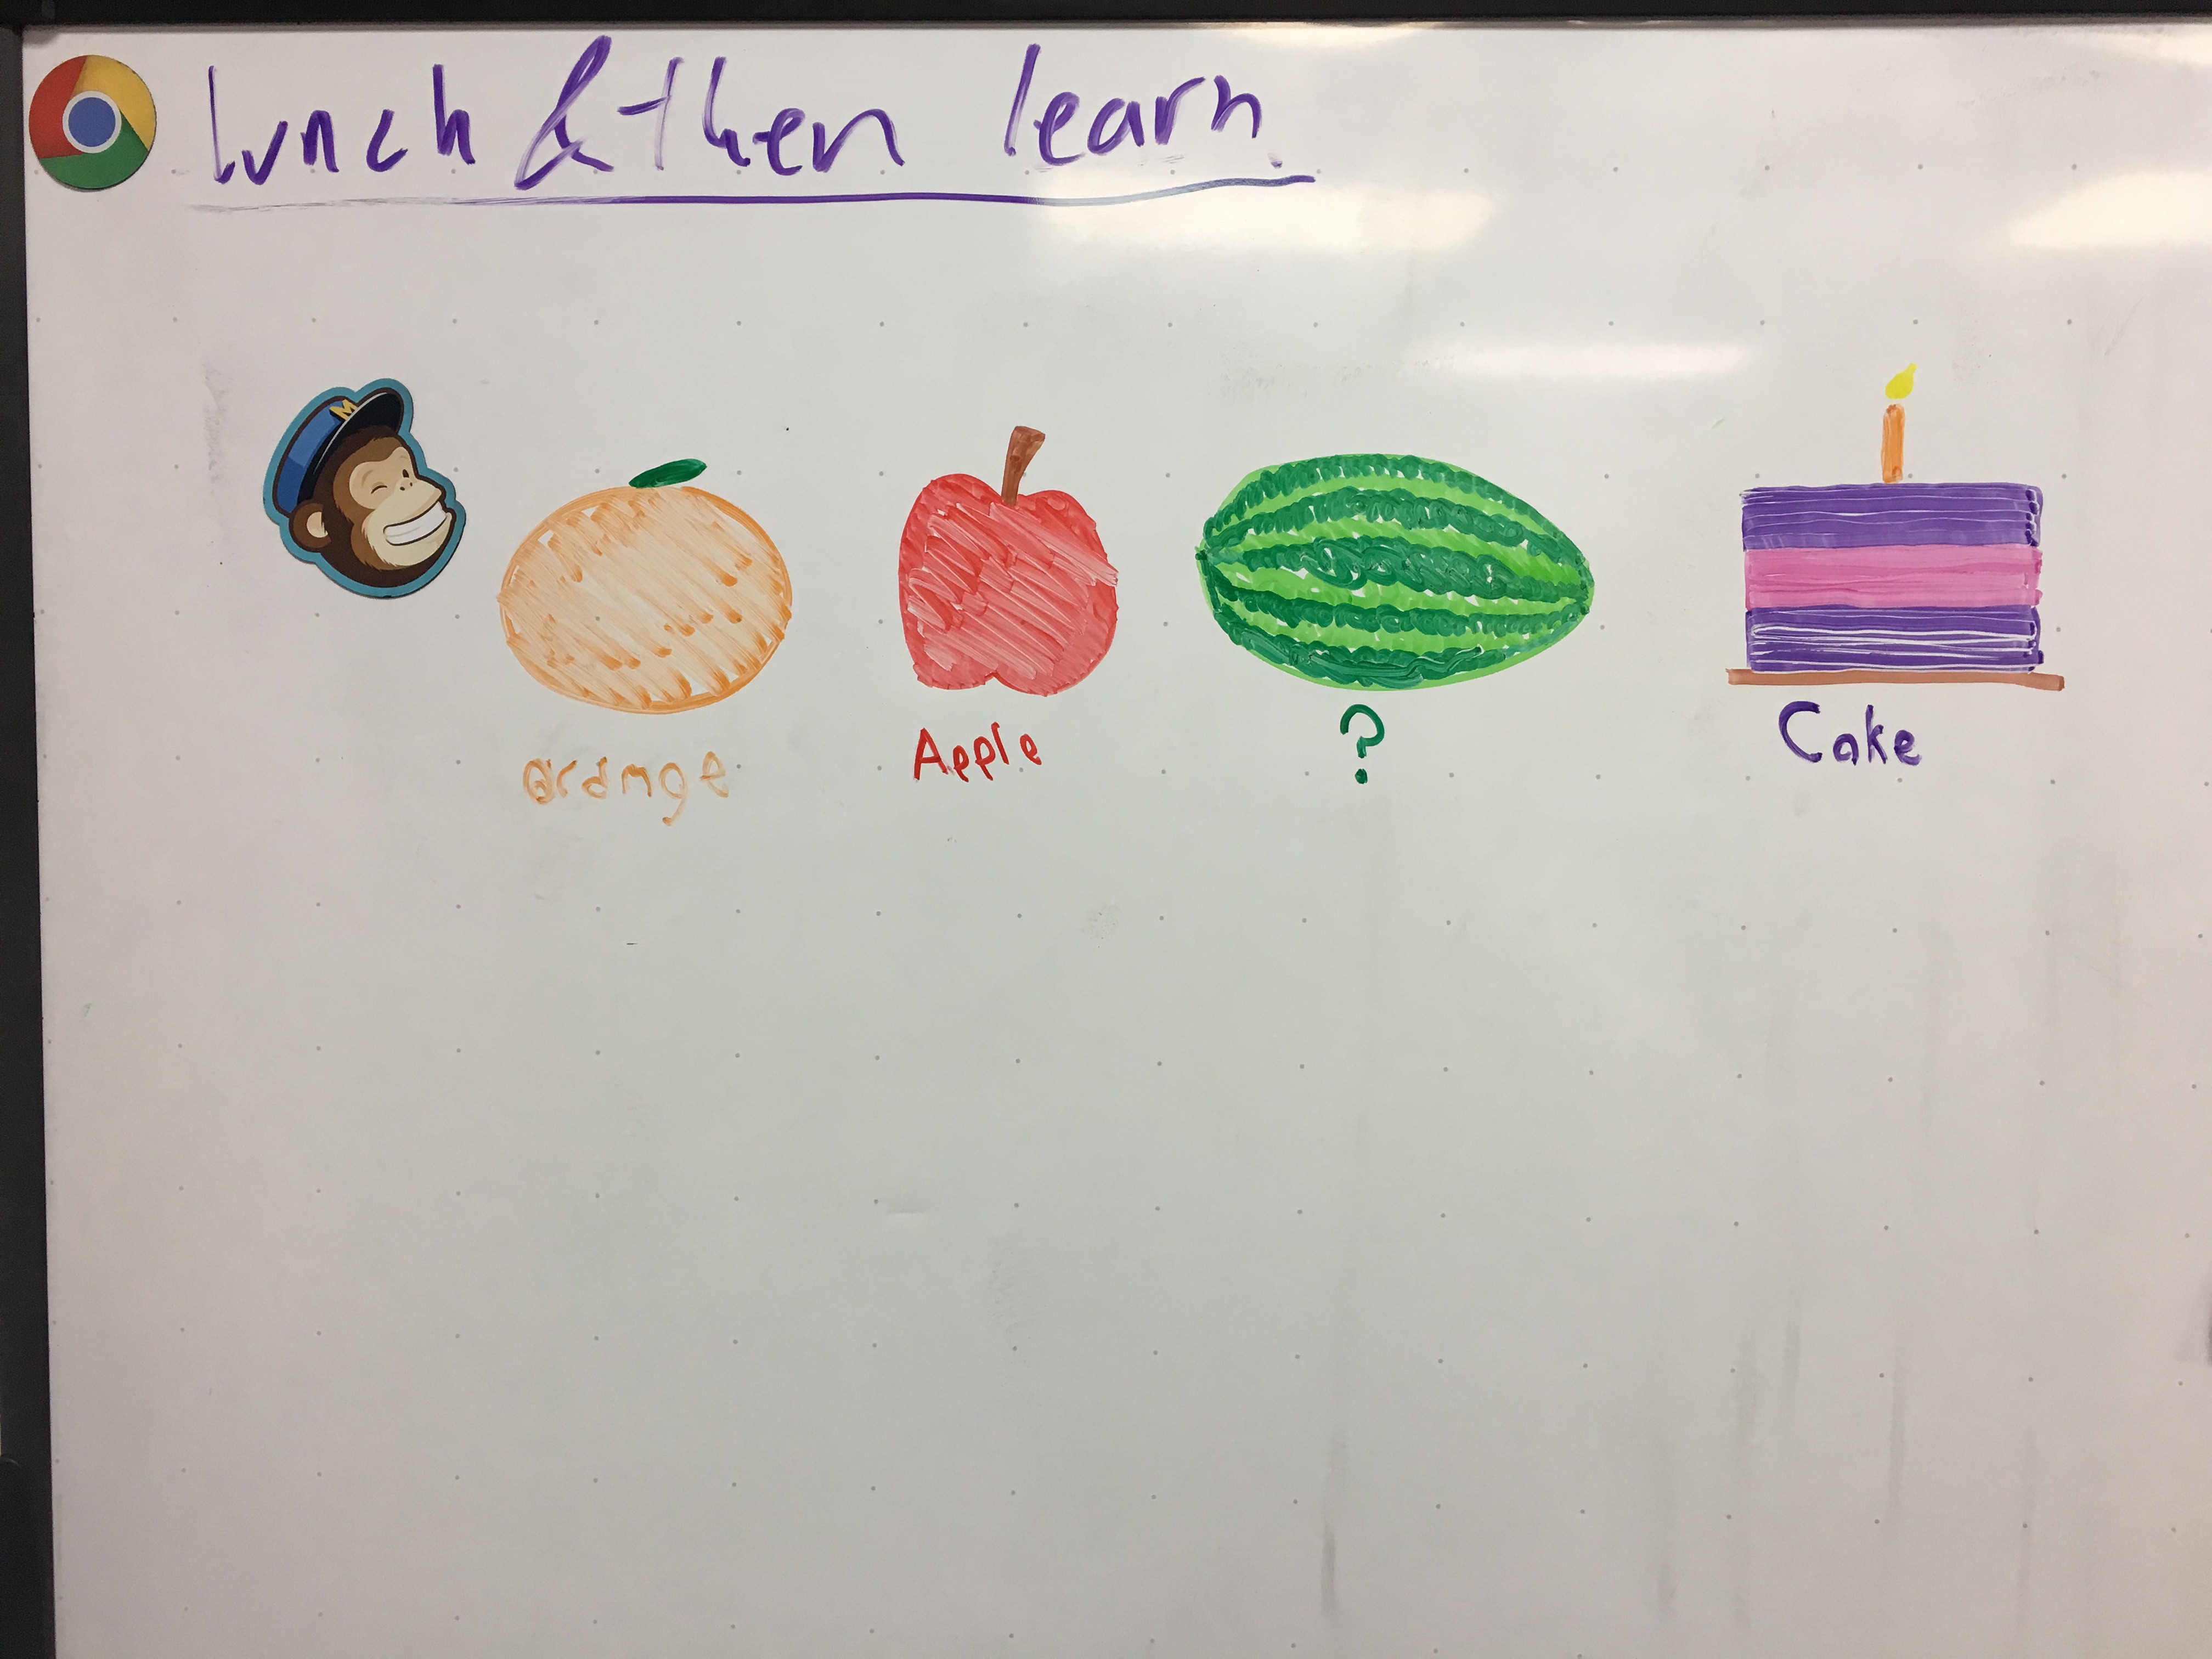 lunch & then learn
M
Orange
Apple
?
Cake